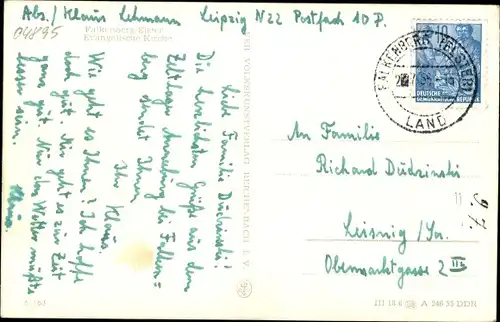 Abs./ Klaus Lehmann Leipzig N22 Postfach 10 P.
04895
Falkenberg/Elster
Evangelische Kirche
Liebe Familie Dudzinski!
Die herzlichsten Grüße aus dem
Zeltlager Annaburg bei Falken-
berg sendet Ihnen
Ihr Klaus.
Wie geht es Ihnen? Ich hoffe
doch gut. Mir geht es zur Zeit
ganz gut. Nur das Wetter müßte
besser sein.
Klaus.
VEB VOLKSKUNSTVERLAG REICHENBACH I. V.
FALKENBERG (ELSTER)
LAND
DEUTSCHE
DEMOKRATISCHE REPUBLIK
An Familie
Richard Dudzinski
9.7.
Leisnig /Sa.
Obermarktgasse 2 III
III 18 6 A 246 53 DDR